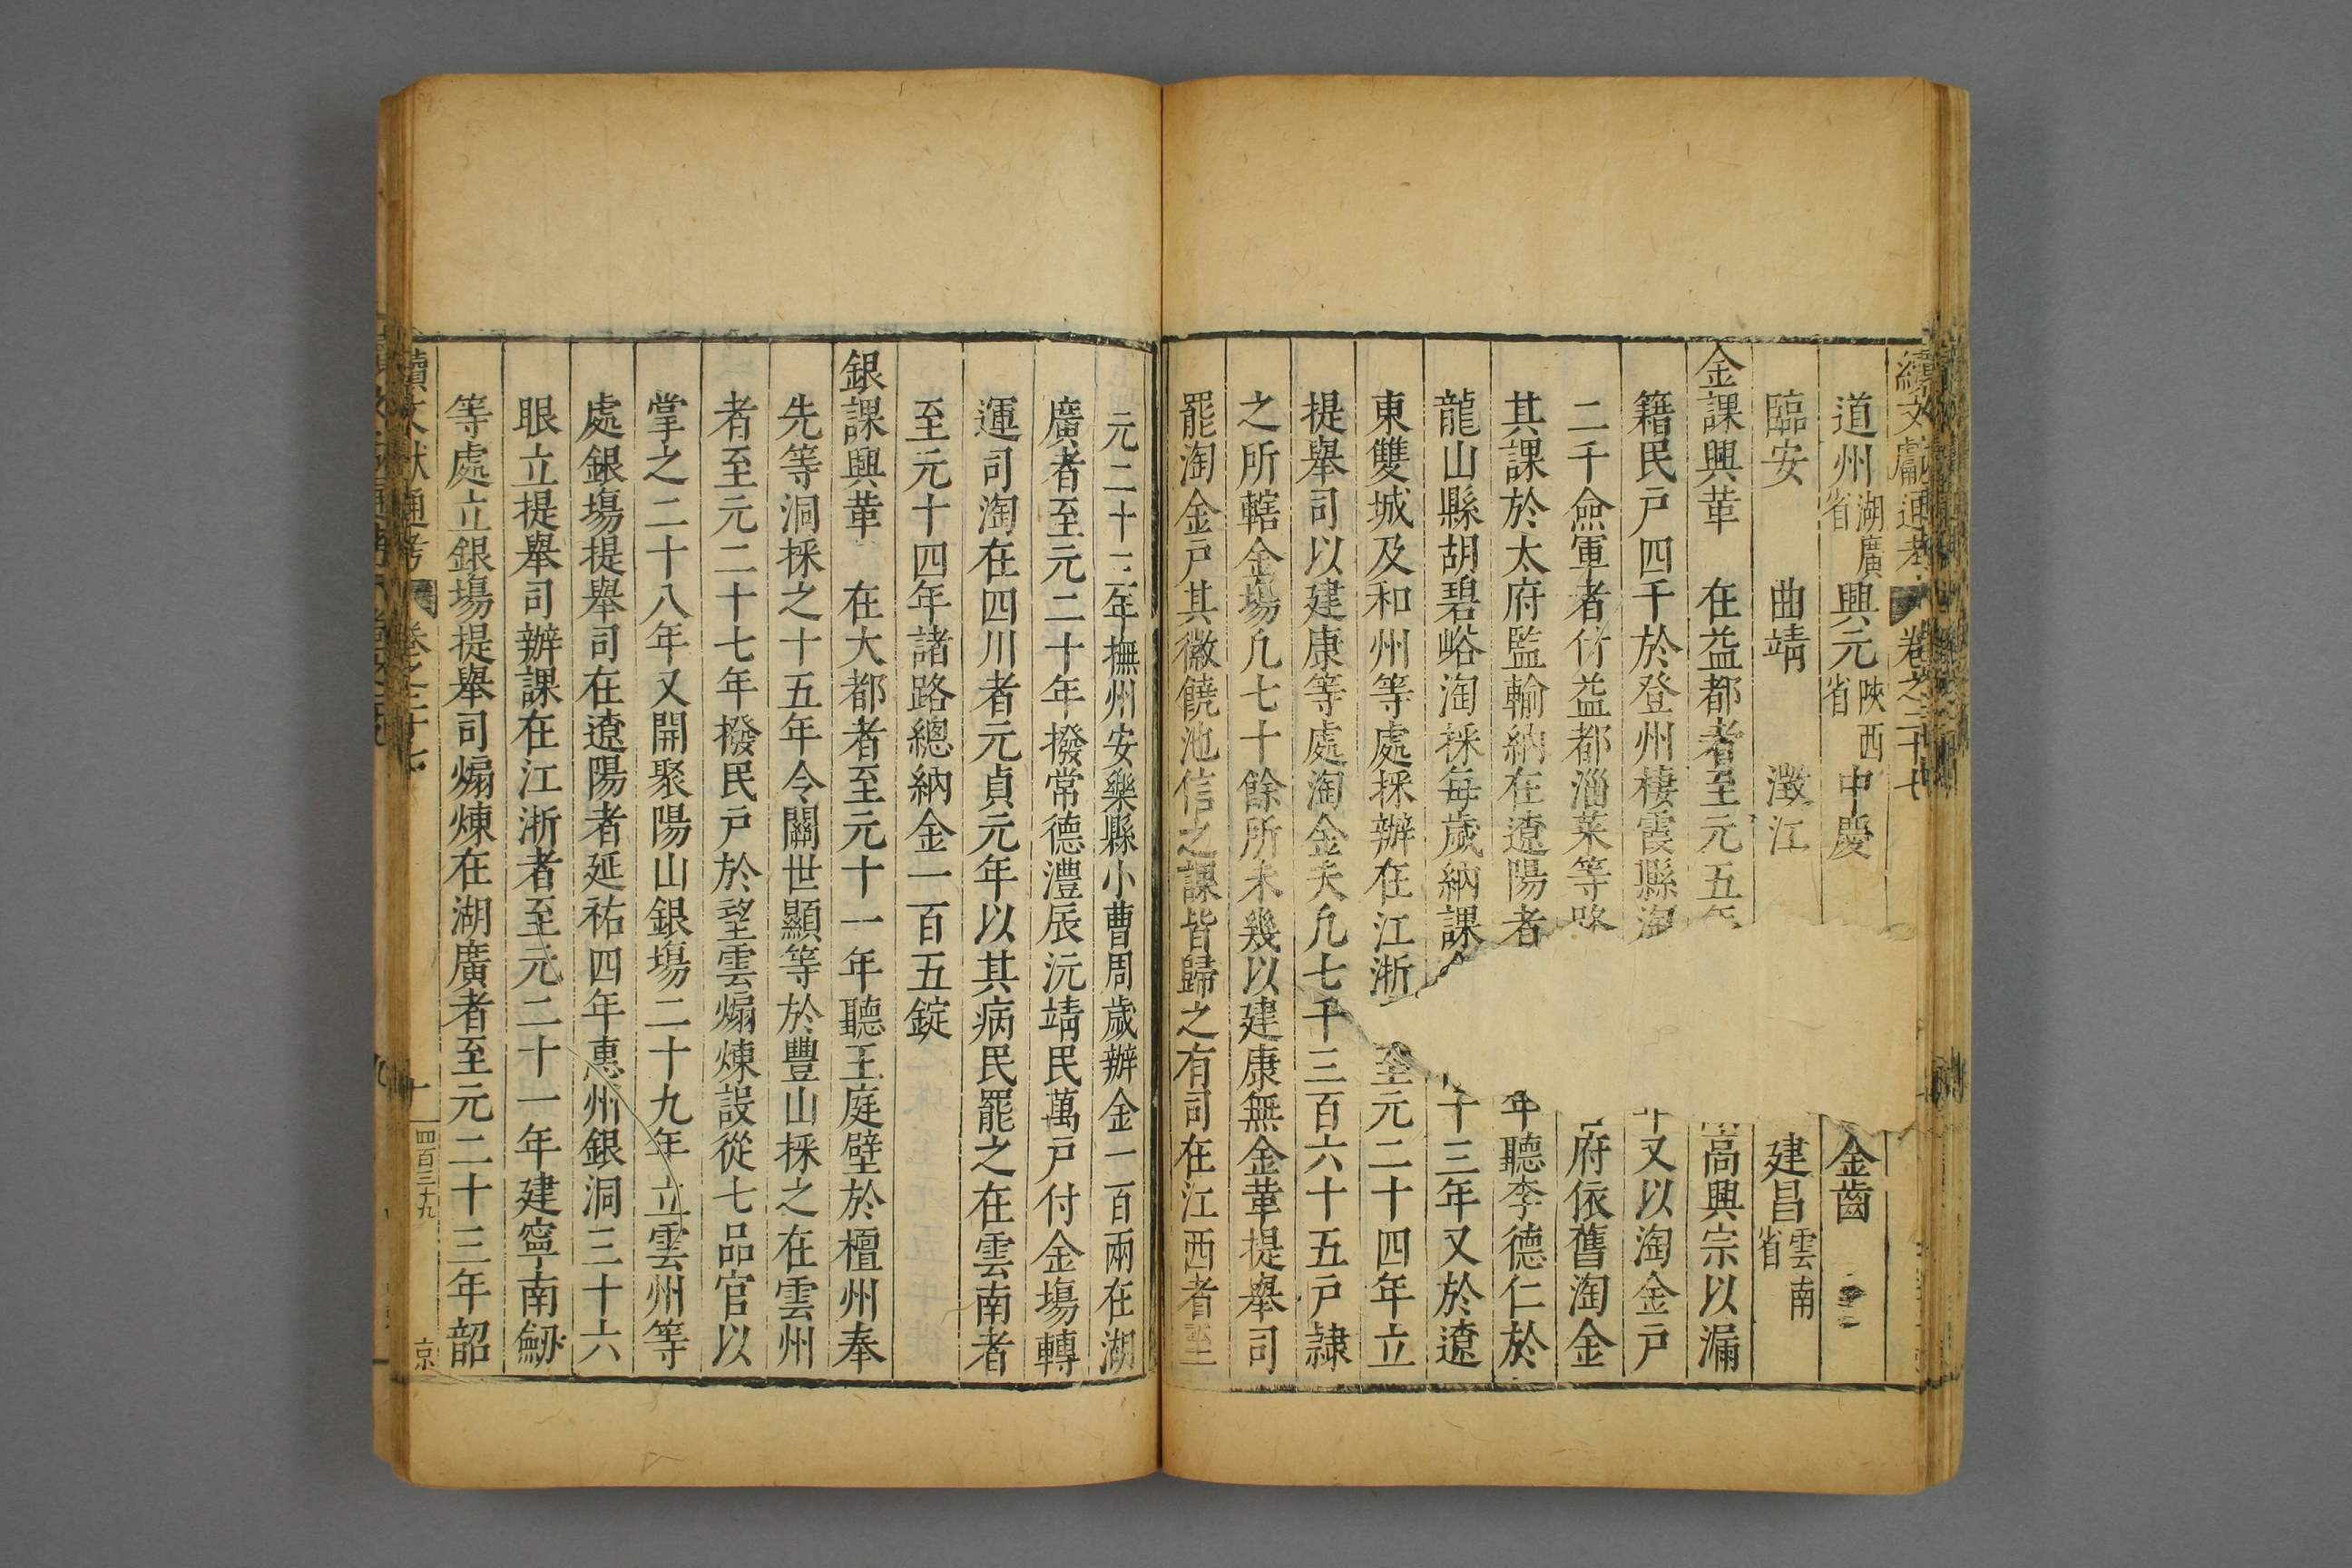 續文獻通考 卷之二十七
道州湖廣省 興元陝西省 中慶 金齒
臨安 曲靖 澂江 建昌雲南省
金課興革 在益都者至元五年 高興宗以漏
籍民戸四千於登州棲霞縣淘 年又以淘金戸
二千僉軍者付益都淄莱等路 府依舊淘金
其課於太府監輸納在遼陽者 年聽李德仁於
龍山縣胡碧峪淘採每歲納課金 十三年又於遼
東雙城及和州等處採辦在江浙 至元二十四年立
提舉司以建康等處淘金夫凢七千三百六十五戸隷
之所轄金塲凢七十餘所未幾以建康無金革提舉司
罷淘金戸其徽饒池信之課皆歸之有司在江西者至
元二十三年撫州安樂縣小曹周歲辦金一百兩在湖
廣者至元二十年撥常德澧辰沅靖民萬戸付金塲轉
運司淘在四川者元貞元年以其病民罷之在雲南者
至元十四年諸路總納金一百五錠
銀課興革 在大都者至元十一年聽王庭璧於檀州奉
先等洞採之十五年令關世顯等於豐山採之在雲州
者至元二十七年撥民戸於望雲煽煉設從七品官以
掌之二十八年又開聚陽山銀塲二十九年立雲州等
處銀塲提舉司在遼陽者延祐四年惠州銀洞三十六
眼立提舉司辦課在江浙者至元二十一年建寧南劒
等處立銀塲提舉司煽煉在湖廣者至元二十三年韶
續文獻通考 卷之二十七 四百三十九 京